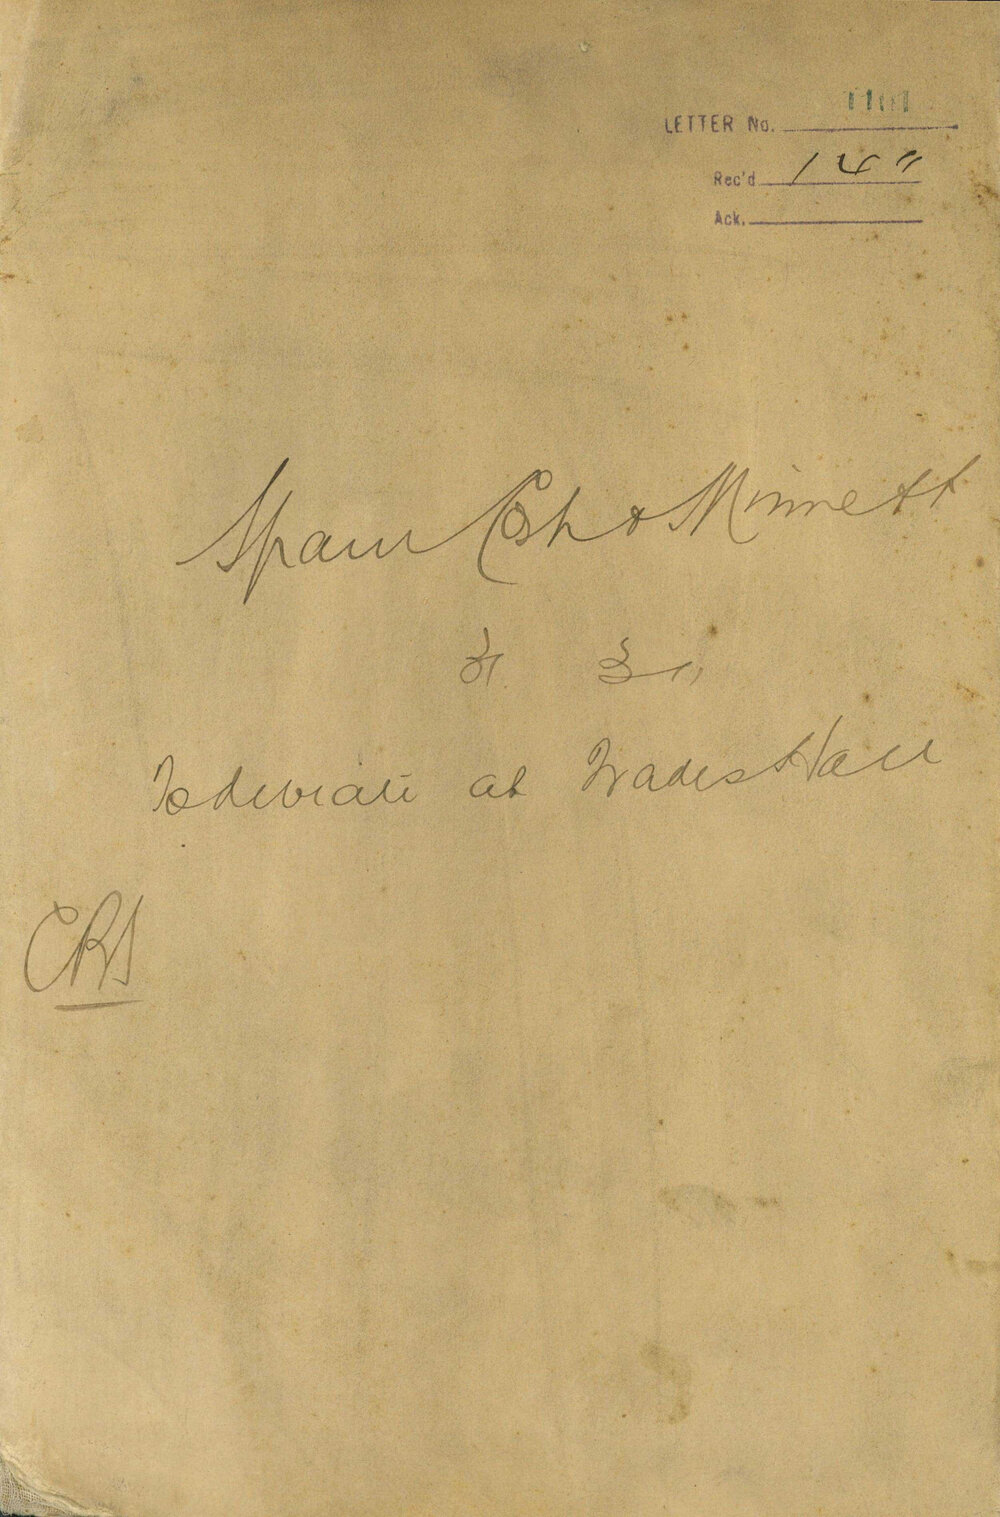 LETTER No. 1101
Rec'd 14"
Ack.
Spain Cosh & Minnett
To deviate at Trades Hall
CRS